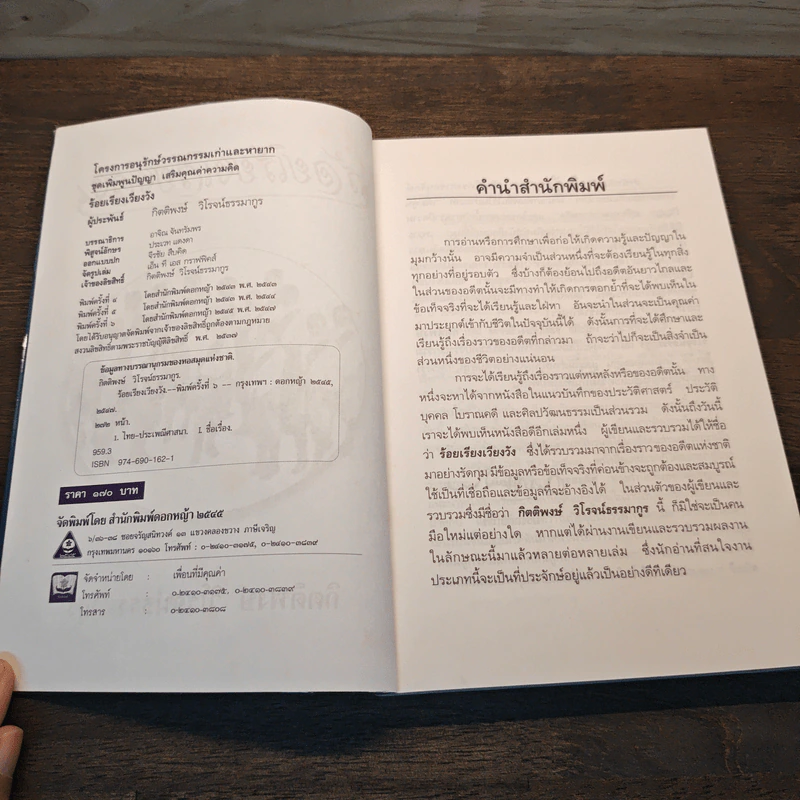 โครงการอนุรักษ์วรรณกรรมเก่าและหายาก
ชุดเพิ่มพูนปัญญา เสริมคุณค่าความคิด
ร้อยเรียงเวียงวัง
ผู้ประพันธ์ กิตติพงษ์ วิโรจน์ธรรมากูร
บรรณาธิการ อาจิณ จันทรัมพร
พิสูจน์อักษร ประเวท แดงดา
ออกแบบปก จีรชัย สืบคิด
จัดรูปเล่ม เอ็น ที เอส กราฟฟิคส์
เจ้าของลิขสิทธิ์ กิตติพงษ์ วิโรจน์ธรรมากูร
พิมพ์ครั้งที่ ๔ โดยสำนักพิมพ์ดอกหญ้า ๒๕๔๓ พ.ศ. ๒๕๔๓
พิมพ์ครั้งที่ ๕ โดยสำนักพิมพ์ดอกหญ้า ๒๕๔๓ พ.ศ. ๒๕๔๔
พิมพ์ครั้งที่ ๖ โดยสำนักพิมพ์ดอกหญ้า ๒๕๔๕ พ.ศ. ๒๕๔๗
โดยได้รับอนุญาตจัดพิมพ์จากเจ้าของลิขสิทธิ์ถูกต้องตามกฎหมาย
สงวนลิขสิทธิ์ตามพระราชบัญญัติลิขสิทธิ์ พ.ศ. ๒๕๓๗
ข้อมูลทางบรรณานุกรมของหอสมุดแห่งชาติ.
กิตติพงษ์ วิโรจน์ธรรมากูร.
ร้อยเรียงเวียงวัง.--พิมพ์ครั้งที่ ๖ -- กรุงเทพฯ : ดอกหญ้า ๒๕๔๕,
๒๕๔๗.
๒๗๒ หน้า.
๑. ไทย-ประเพณีศาสนา. I. ชื่อเรื่อง.
959.3
ISBN 974-690-162-1
ราคา ๑๗๐ บาท
จัดพิมพ์โดย สำนักพิมพ์ดอกหญ้า ๒๕๔๕
๖/๓๖-๓๘ ซอยจรัญสนิทวงศ์ ๑๓ แขวงคลองขวาง ภาษีเจริญ
กรุงเทพมหานคร ๑๐๑๖๐ โทรศัพท์ : ๐-๒๔๑๐-๓๑๗๕, ๐-๒๔๑๐-๓๘๓๙
จัดจำหน่ายโดย : เพื่อนที่มีคุณค่า
โทรศัพท์ : ๐-๒๔๑๐-๓๑๗๕, ๐-๒๔๑๐-๓๘๓๙
โทรสาร : ๐-๒๔๑๐-๓๘๐๘
คำนำสำนักพิมพ์
การอ่านหรือการศึกษาเพื่อก่อให้เกิดความรู้และปัญญาใน
มุมกว้างนั้น อาจมีความจำเป็นส่วนหนึ่งที่จะต้องเรียนรู้ในทุกสิ่ง
ทุกอย่างที่อยู่รอบตัว ซึ่งบ้างก็ต้องย้อนไปถึงอดีตอันยาวไกลและ
ในส่วนของอดีตนั้นจะมีทางทำให้เกิดการตอกย้ำที่จะได้พบเห็นใน
ข้อเท็จจริงที่จะได้เรียนรู้และใฝ่หา อันจะนำในส่วนจะเป็นคุณค่า
มาประยุกต์เข้ากับชีวิตในปัจจุบันนี้ได้ ดังนั้นการที่จะได้ศึกษาและ
เรียนรู้ถึงเรื่องราวของอดีตที่กล่าวมา ถ้าจะว่าไปก็จะเป็นสิ่งจำเป็น
ส่วนหนึ่งของชีวิตอย่างแน่นอน
การจะได้เรียนรู้ถึงเรื่องราวแต่หนหลังหรือของอดีตนั้น ทาง
หนึ่งจะหาได้จากหนังสือในแนวบันทึกของประวัติศาสตร์ ประวัติ
บุคคล โบราณคดี และศิลปวัฒนธรรมเป็นส่วนรวม ดังนั้นถึงวันนี้
เราจะได้พบเห็นหนังสือดีอีกเล่มหนึ่ง ผู้เขียนและรวบรวมได้ให้ชื่อ
ว่า ร้อยเรียงเวียงวัง ซึ่งได้รวบรวมมาจากเรื่องราวของอดีตแห่งชาติ
มาอย่างรัดกุม มีข้อมูลหรือข้อเท็จจริงที่ค่อนข้างจะถูกต้องและสมบูรณ์
ใช้เป็นที่เชื่อถือและข้อมูลที่จะอ้างอิงได้ ในส่วนตัวของผู้เขียนและ
รวบรวมซึ่งมีชื่อว่า กิตติพงษ์ วิโรจน์ธรรมากูร นี้ ก็มิใช่จะเป็นคน
มือใหม่แต่อย่างใด หากแต่ได้ผ่านงานเขียนและรวบรวมผลงาน
ในลักษณะนี้มาแล้วหลายต่อหลายเล่ม ซึ่งนักอ่านที่สนใจงาน
ประเภทนี้จะเป็นที่ประจักษ์อยู่แล้วเป็นอย่างดีทีเดียว